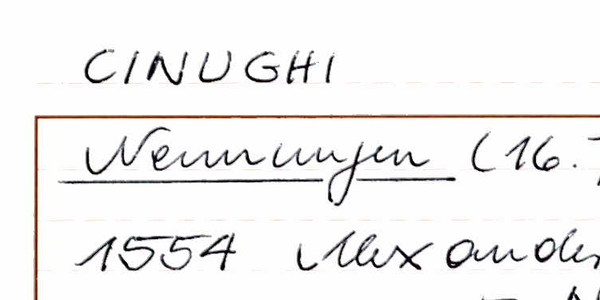 CINUGHI
Nennungen (16.
1554 Alexander